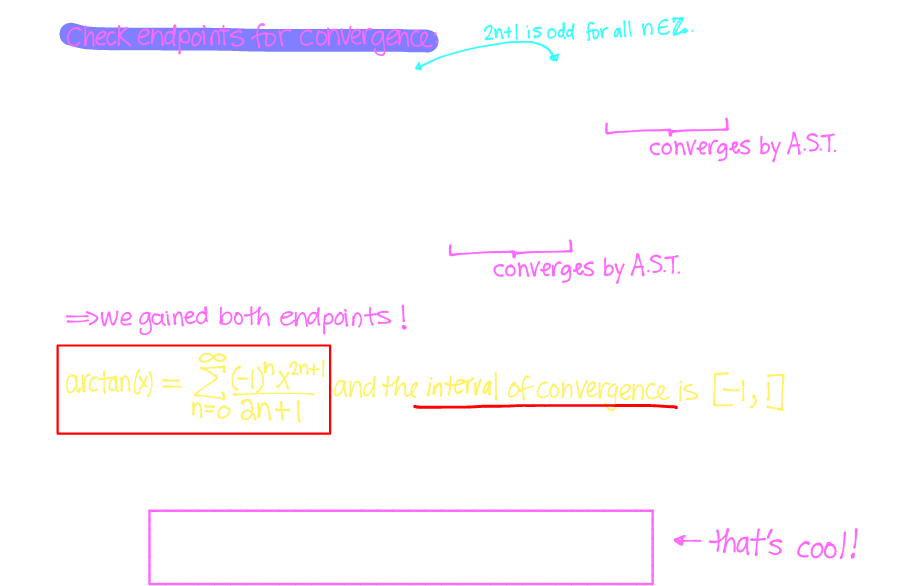 Check endpoints for convergence
2n+1 is odd for all n∈ℤ.
converges by A.S.T.
converges by A.S.T.
⇒ we gained both endpoints!
arctan(x) = ∑_{n=0}^{∞} \frac{(-1)^n x^{2n+1}}{2n+1} and the interval of convergence is [-1, 1]
← that's cool!